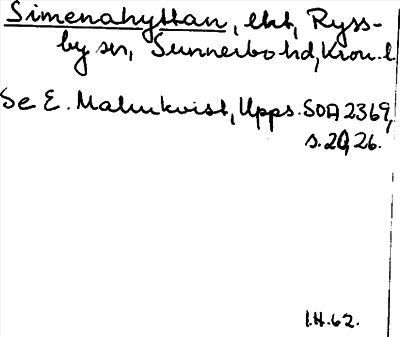 Simenahyttan, ekt, Ryss-
by sn, Sunnerbo hd, Kron. l
Se E. Malmkvist, Upps. SOA 2369,
s. 20, 26.
I.H.62.